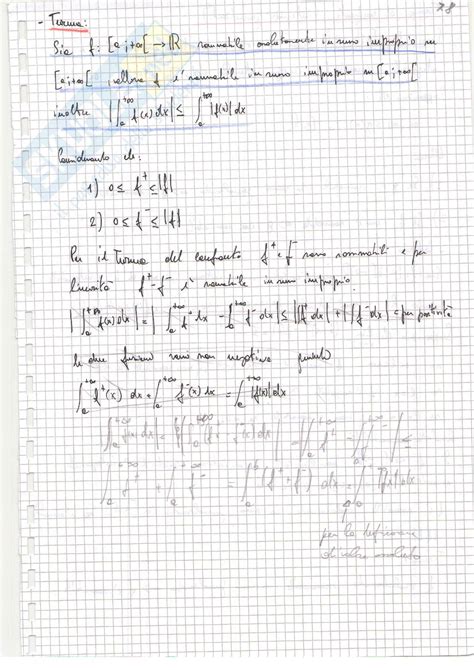 78
- Teorema:
Sia f: [a;+∞[ → ℝ sommabile assolutamente in senso improprio in
[a;+∞[ allora f è sommabile in senso improprio in [a;+∞[
inoltre |∫_a^{+∞} f(x) dx| ≤ ∫_a^{+∞} |f(x)| dx
Considerato che:
1) 0 ≤ f⁺ ≤ |f|
2) 0 ≤ f⁻ ≤ |f|
Per il Teorema del confronto f⁺ e f⁻ sono sommabili e per
linearità f⁺-f⁻ è sommabile in senso improprio.
|∫_a^{+∞} f(x) dx| = |∫_a^{+∞} f⁺ dx - ∫_a^{+∞} f⁻ dx| ≤ |∫f⁺ dx| + |∫f⁻ dx| = per positività
le due funzioni sono non negative quindi
∫_a^{+∞} f⁺(x) dx + ∫_a^{+∞} f⁻(x) dx = ∫_a^{+∞} |f(x)| dx
per la definizione
di valore assoluto